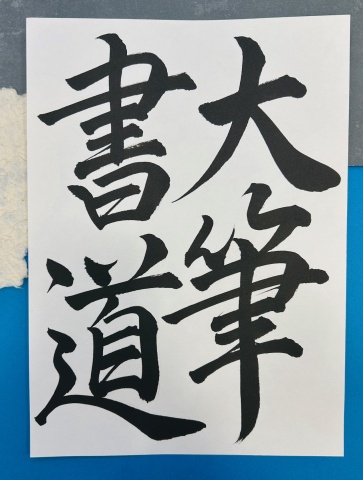 大筆
書道